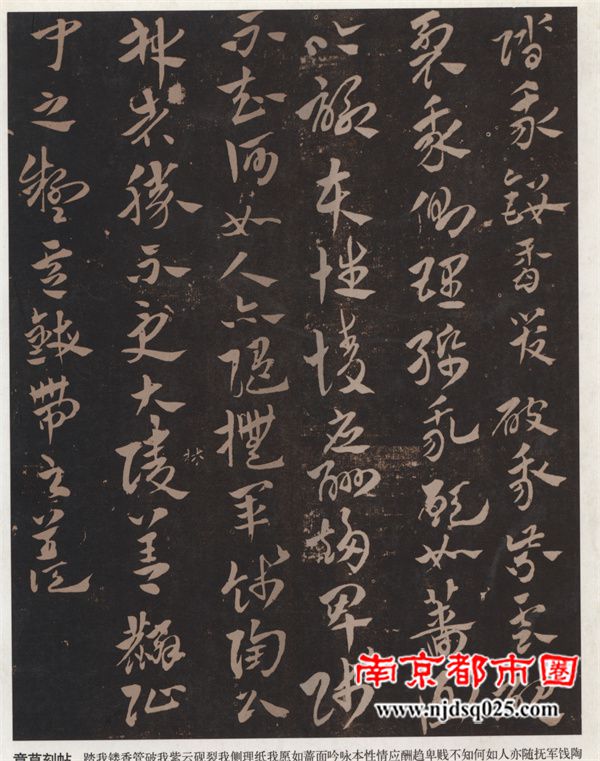 踏我鏤香管破我紫雲硯
裂我側理紙我願如薔面
吟詠本性情應酬趨卑賤
不知何如人亦隨撫軍餞陶公
不更大陵善
中之帶之
南京都市圈
www.njdsq025.com
章草刻帖 踏我镂香管破我紫云砚裂我侧理纸我愿如蔷面吟咏本性情应酬趋卑贱不知何如人亦随抚军饯陶